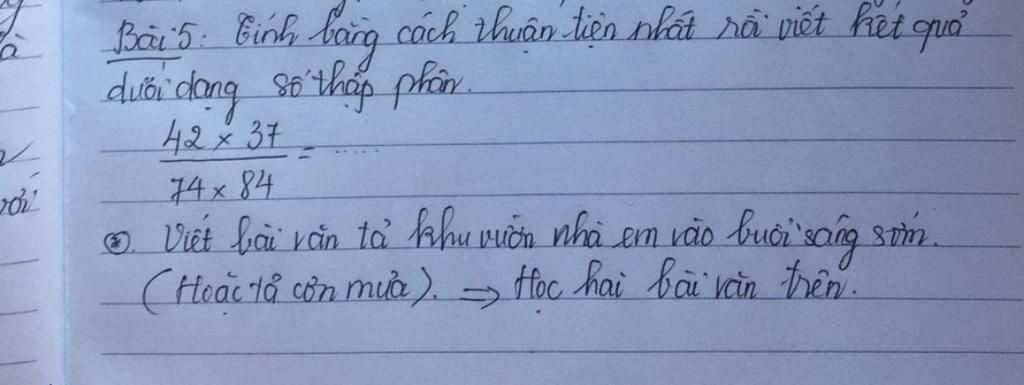 Bài 5: Tính bằng cách thuận tiện nhất rồi viết kết quả
dưới dạng số thập phân.
42 x 37
74 x 84
= .....
* Viết bài văn tả khu vườn nhà em vào buổi sáng sớm.
(Hoặc tả cơn mưa). ⇒ Học hai bài văn trên.